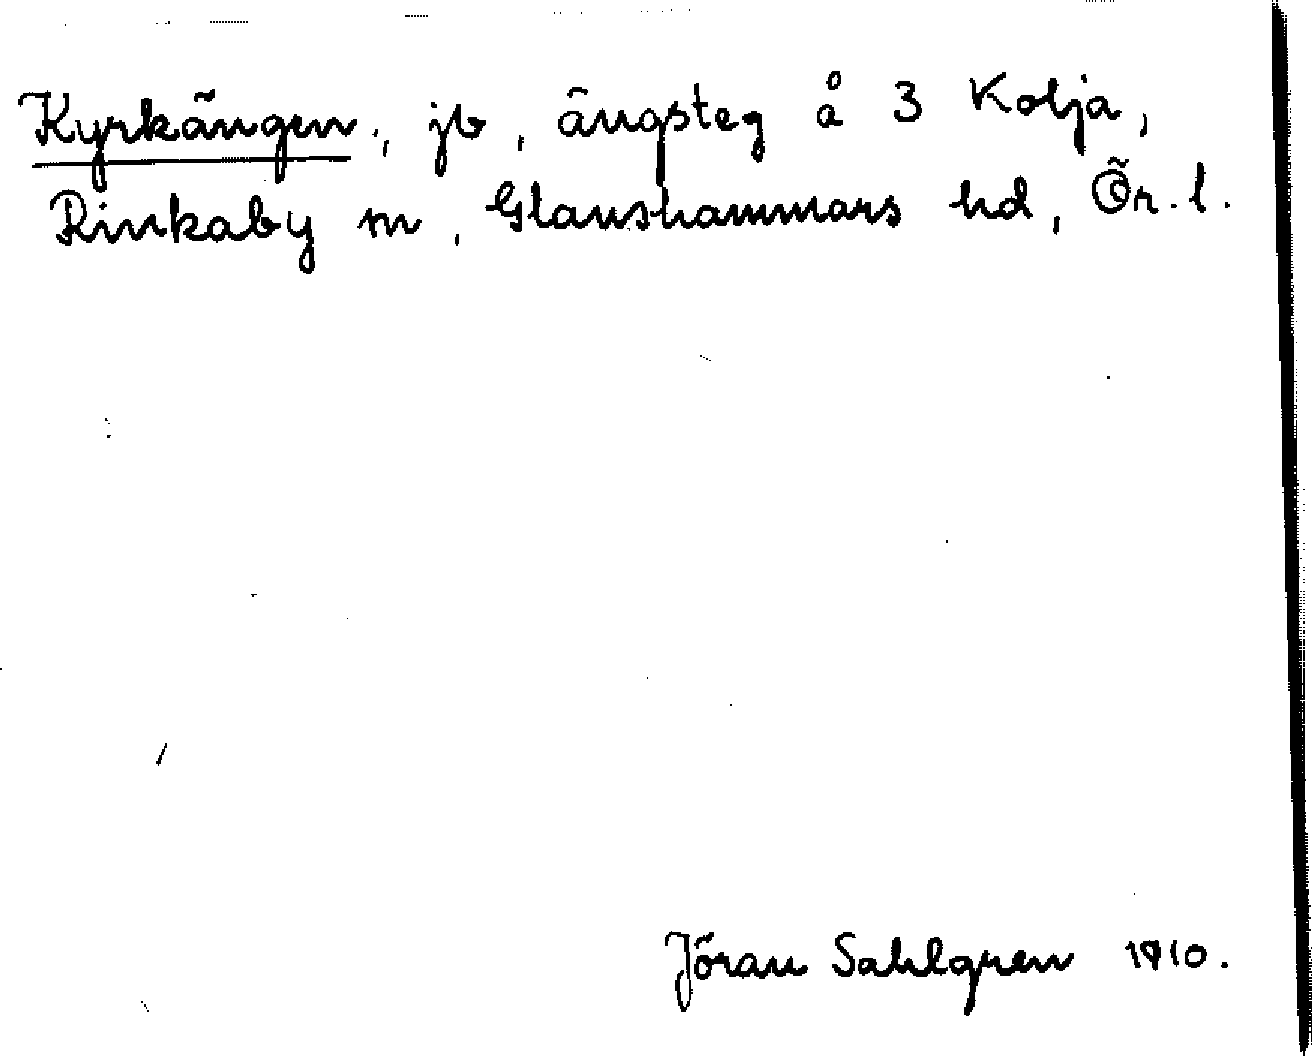 Kyrkängen, jb, ängsteg å 3 Kolja,
Rinkaby sn, Glanshammars hd, Ör. l.
Jöran Sahlgren 1910.